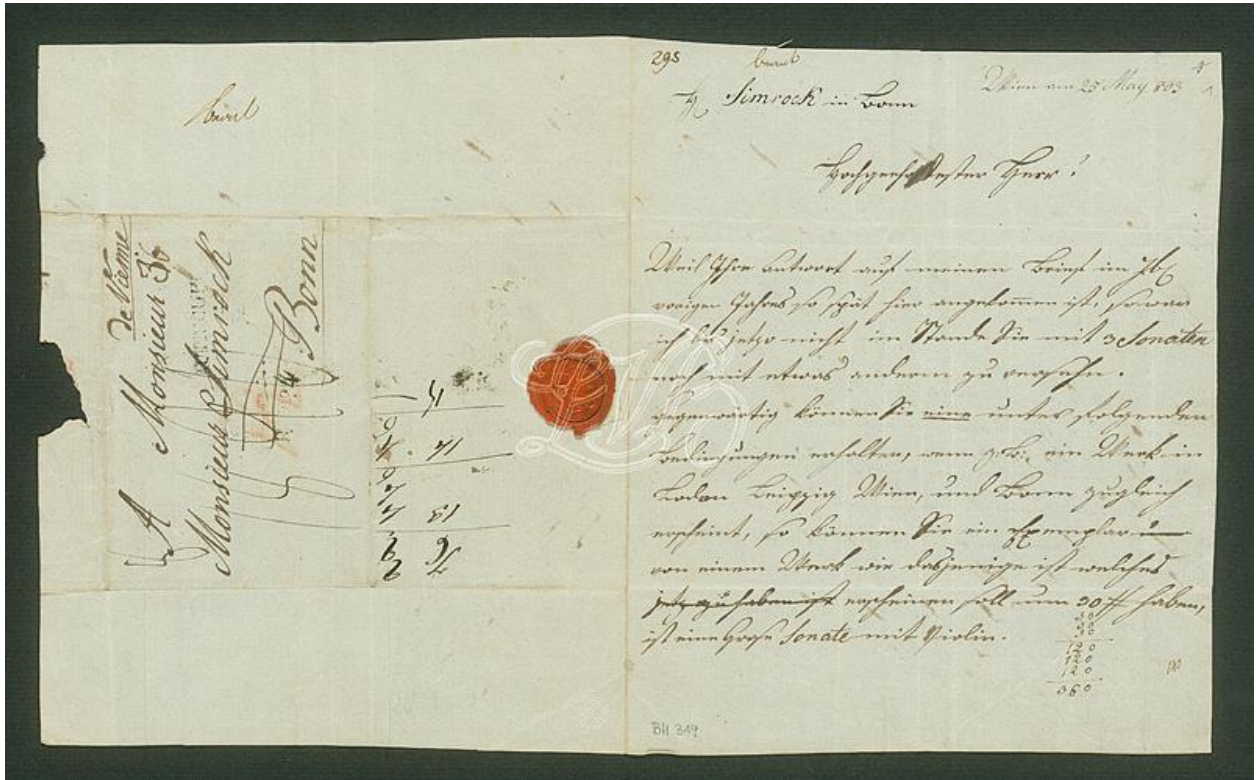 beant
de Vienne
A
Monsieur
Monsieur Simrock
Bonn
295
beant
H. Simrock in Bonn
Wien am 25 May 803
Hochgeehrtester Herr!
Weil Ihre Antwort auf meinen Brief im
vorigen Jahres so spät hier angekommen ist, so war
ich bis jetzo nicht im Stande Sie mit 3 Sonaten
noch mit etwas anderm zu versehn.
gegenwärtig können Sie eine unter folgenden
Bedingungen erhalten, wenn z.B: ein Werk in
Leipzig Wien, und Bonn zugleich
erscheint, so können Sie ein Exemplar
von einem Werk wie dasjenige ist welches
jetz zu haben ist erscheinen soll um 30 # haben,
ist eine große Sonate mit Violin.
120
120
120
360
BH 319